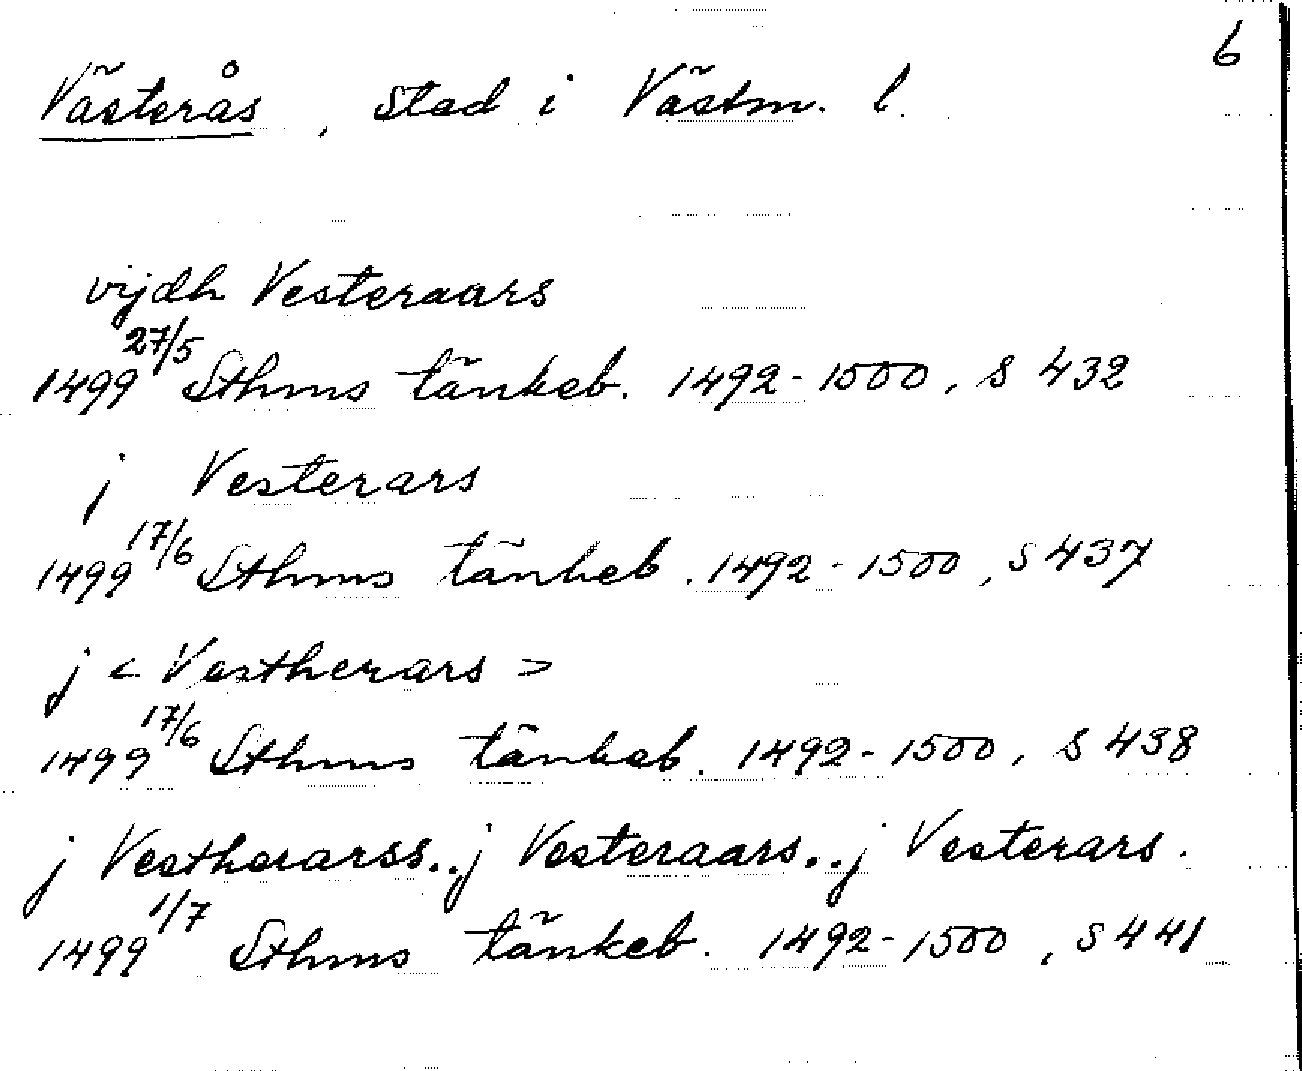 6
Västerås, stad i Västm. l.
vijdh Vesteraars
1499 27/5 Sthms tänkeb. 1492-1500, s 432
j Vesterars
1499 17/6 Sthms tänkeb. 1492-1500, s 437
j < Vestherars >
1499 17/6 Sthms tänkeb. 1492-1500, s 438
j Vestherarss.. j Vesteraars.. j Vesterars.
1499 1/7 Sthms tänkeb. 1492-1500, s 441